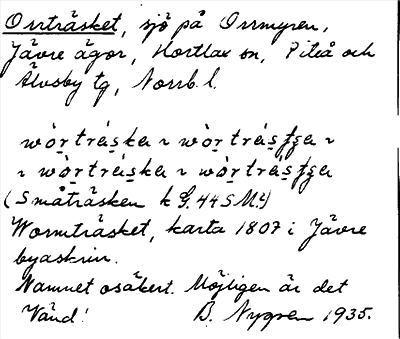 Orrträsket, sjö på Orrmyren,
Jävre ägor, Hortlax sn, Piteå och
Älvsby tg, Norrb. l.
wòrträska ~ wòrträsʃʒa ~
~ wòrträska ~ wòrträsʃʒa
(Småträsken k G. 44 S M.
Wormträsket, karta 1807 i Jävre
byaskrin.
Namnet osäkert. Möjligen är det
Vänd! B. Nygren 1935.